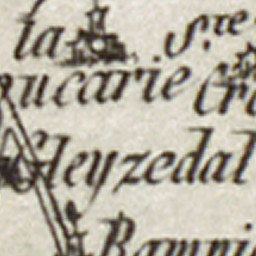 la Ste
ucarie Cr
Gleyzedal
Ramni